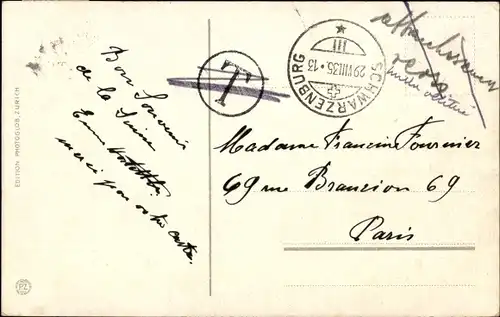 EDITION PHOTOGLOB, ZURICH
Bon Souvenir
de la Suisse
Emma
merci pour votre carte.
PZ
T
SCHWARZENBURG
29.VIII.35-13
III
Madame Francine Fournier
69 rue Brancion 69
Paris